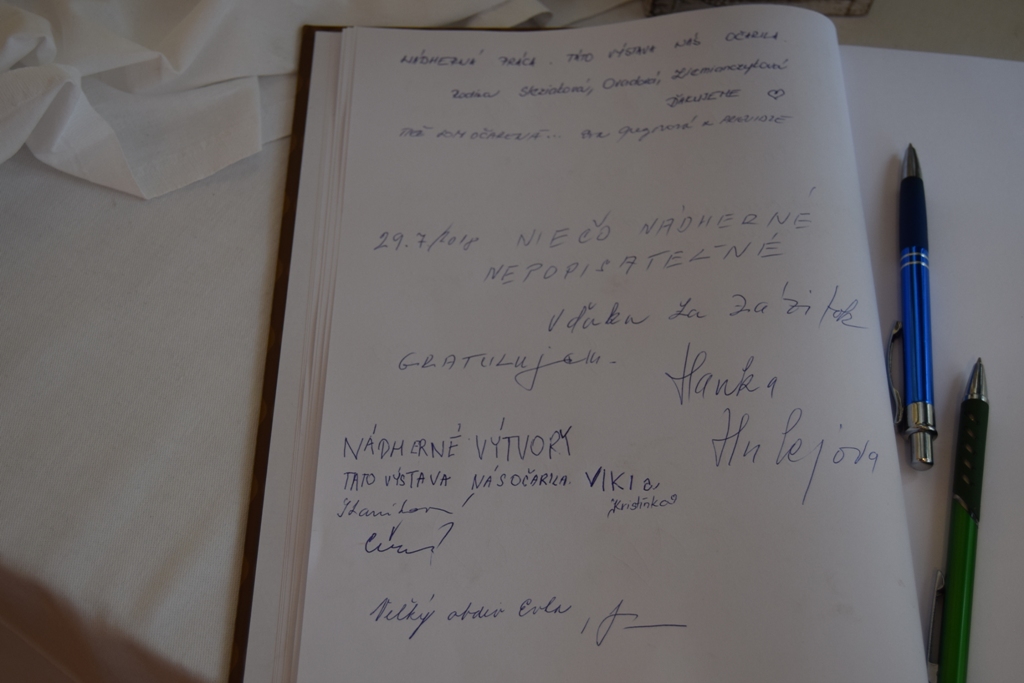 NÁDHERNÁ PRÁCA. TÁTO VÝSTAVA NÁS OČARILA.
Rodina Sleziaková,
ĎAKUJEME ♡
TIEŽ SOM OČARENÁ...
29.7/2018 NIEČO NÁDHERNÉ
NEPOPISATEĽNÉ
Vďaka za zážitok
GRATULUJEM.
Hanka
Hulejova
NÁDHERNÉ VÝTVORY
TÁTO VÝSTAVA NÁS OČARILA. VIKI a
Kristínka
Veľký obdiv